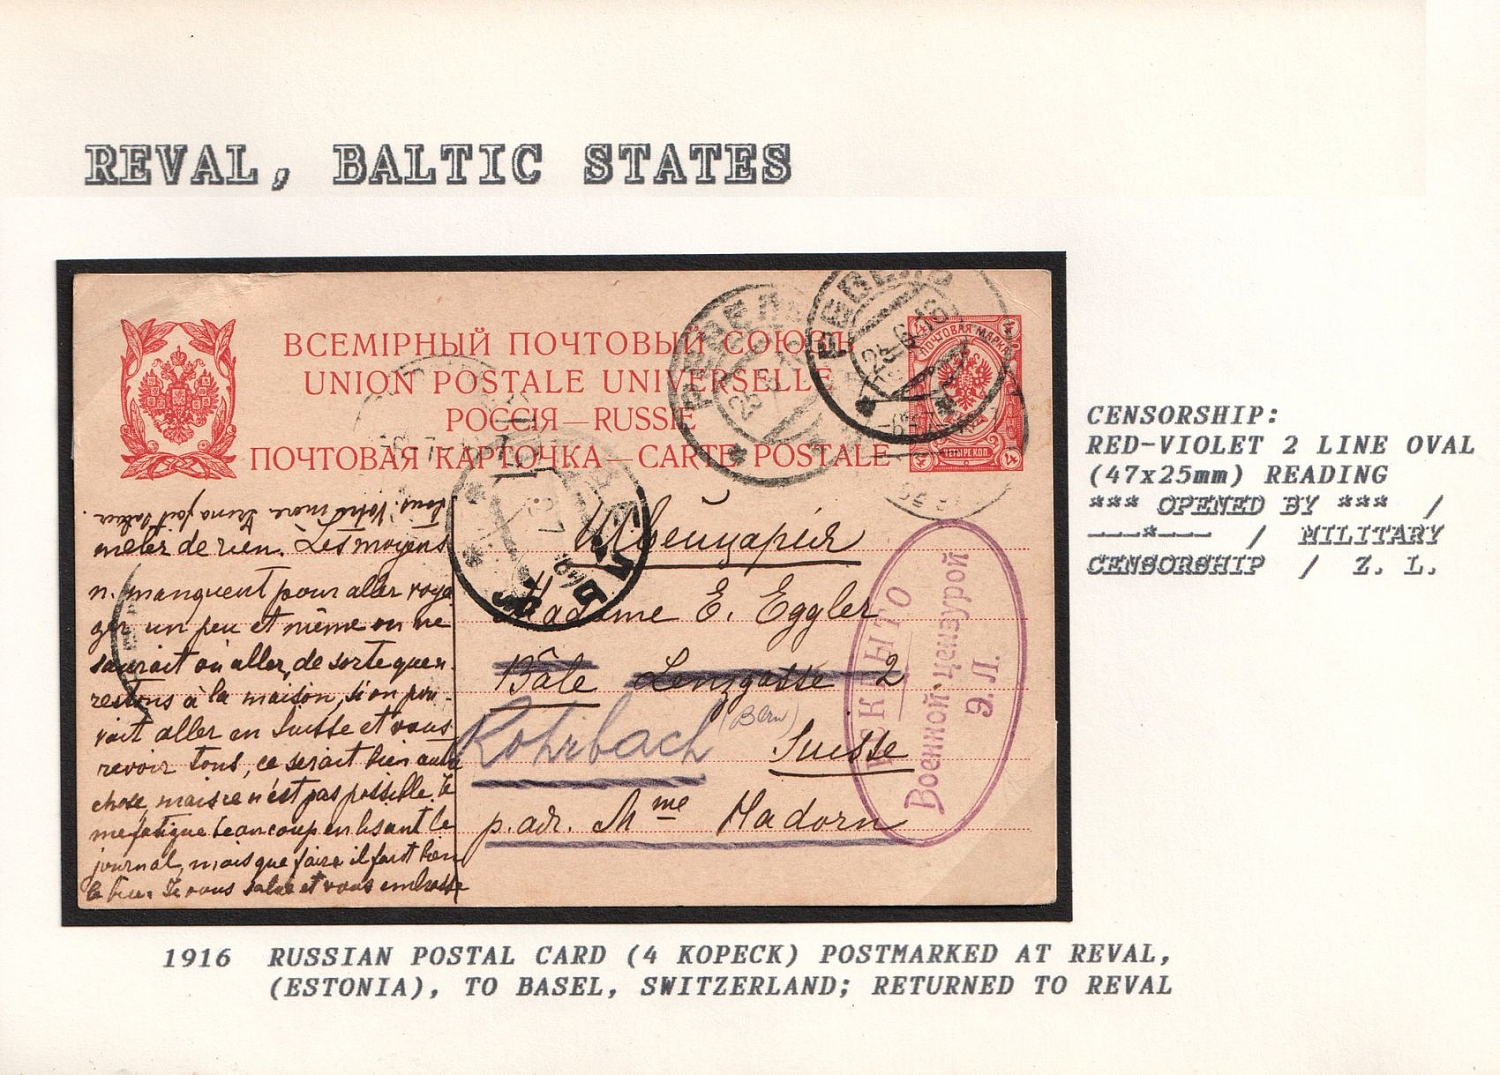 REVAL, BALTIC STATES
ВСЕМІРНЫЙ ПОЧТОВЫЙ СОЮЗЪ
UNION POSTALE UNIVERSELLE
РОССІЯ—RUSSIE
ПОЧТОВАЯ КАРТОЧКА—CARTE POSTALE
РЕВЕЛЬ
РЕВЕЛЬ
ПОЧТОВАЯ МАРКА
4
4
4
ЧЕТЫРЕ КОП.
tous. Votre mère
mêler de rien. Les moyens
n. manquent pour aller voya
ger un peu et même on ne
saurait où aller, de sorte que n.
restons à la maison, si on pou-
vait aller en Suisse et vous
revoir tous, ce serait bien autre
chose, mais ce n'est pas possible. Je
me fatigue beaucoup en lisant le
journal, mais que faire il faut bien
le lire. Je vous salue et vous embrasse
Швейцарія
Madame E. Eggler
Bâle Lenzgasse 2
Rohrbach (Bern)
Suisse
p. adr. Mme Madorn
ВСКРЫТО
Военной цензурой
Э.Л.
CENSORSHIP:
RED-VIOLET 2 LINE OVAL
(47x25mm) READING
*** OPENED BY *** /
———*——— / MILITARY
CENSORSHIP / Z. L.
1916 RUSSIAN POSTAL CARD (4 KOPECK) POSTMARKED AT REVAL,
(ESTONIA), TO BASEL, SWITZERLAND; RETURNED TO REVAL